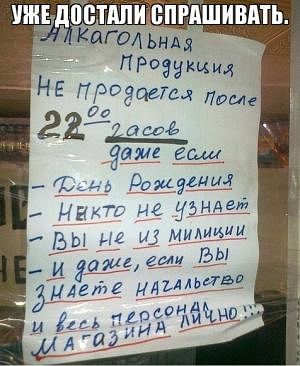 УЖЕ ДОСТАЛИ СПРАШИВАТЬ.
Алкагольная
продукция
НЕ продается после
22⁰⁰ часов
даже если
– День Рождения
– Никто не узнает
– Вы не из милиции
– и даже, если Вы
знаете начальство
и весь персонал
магазина лично!!!